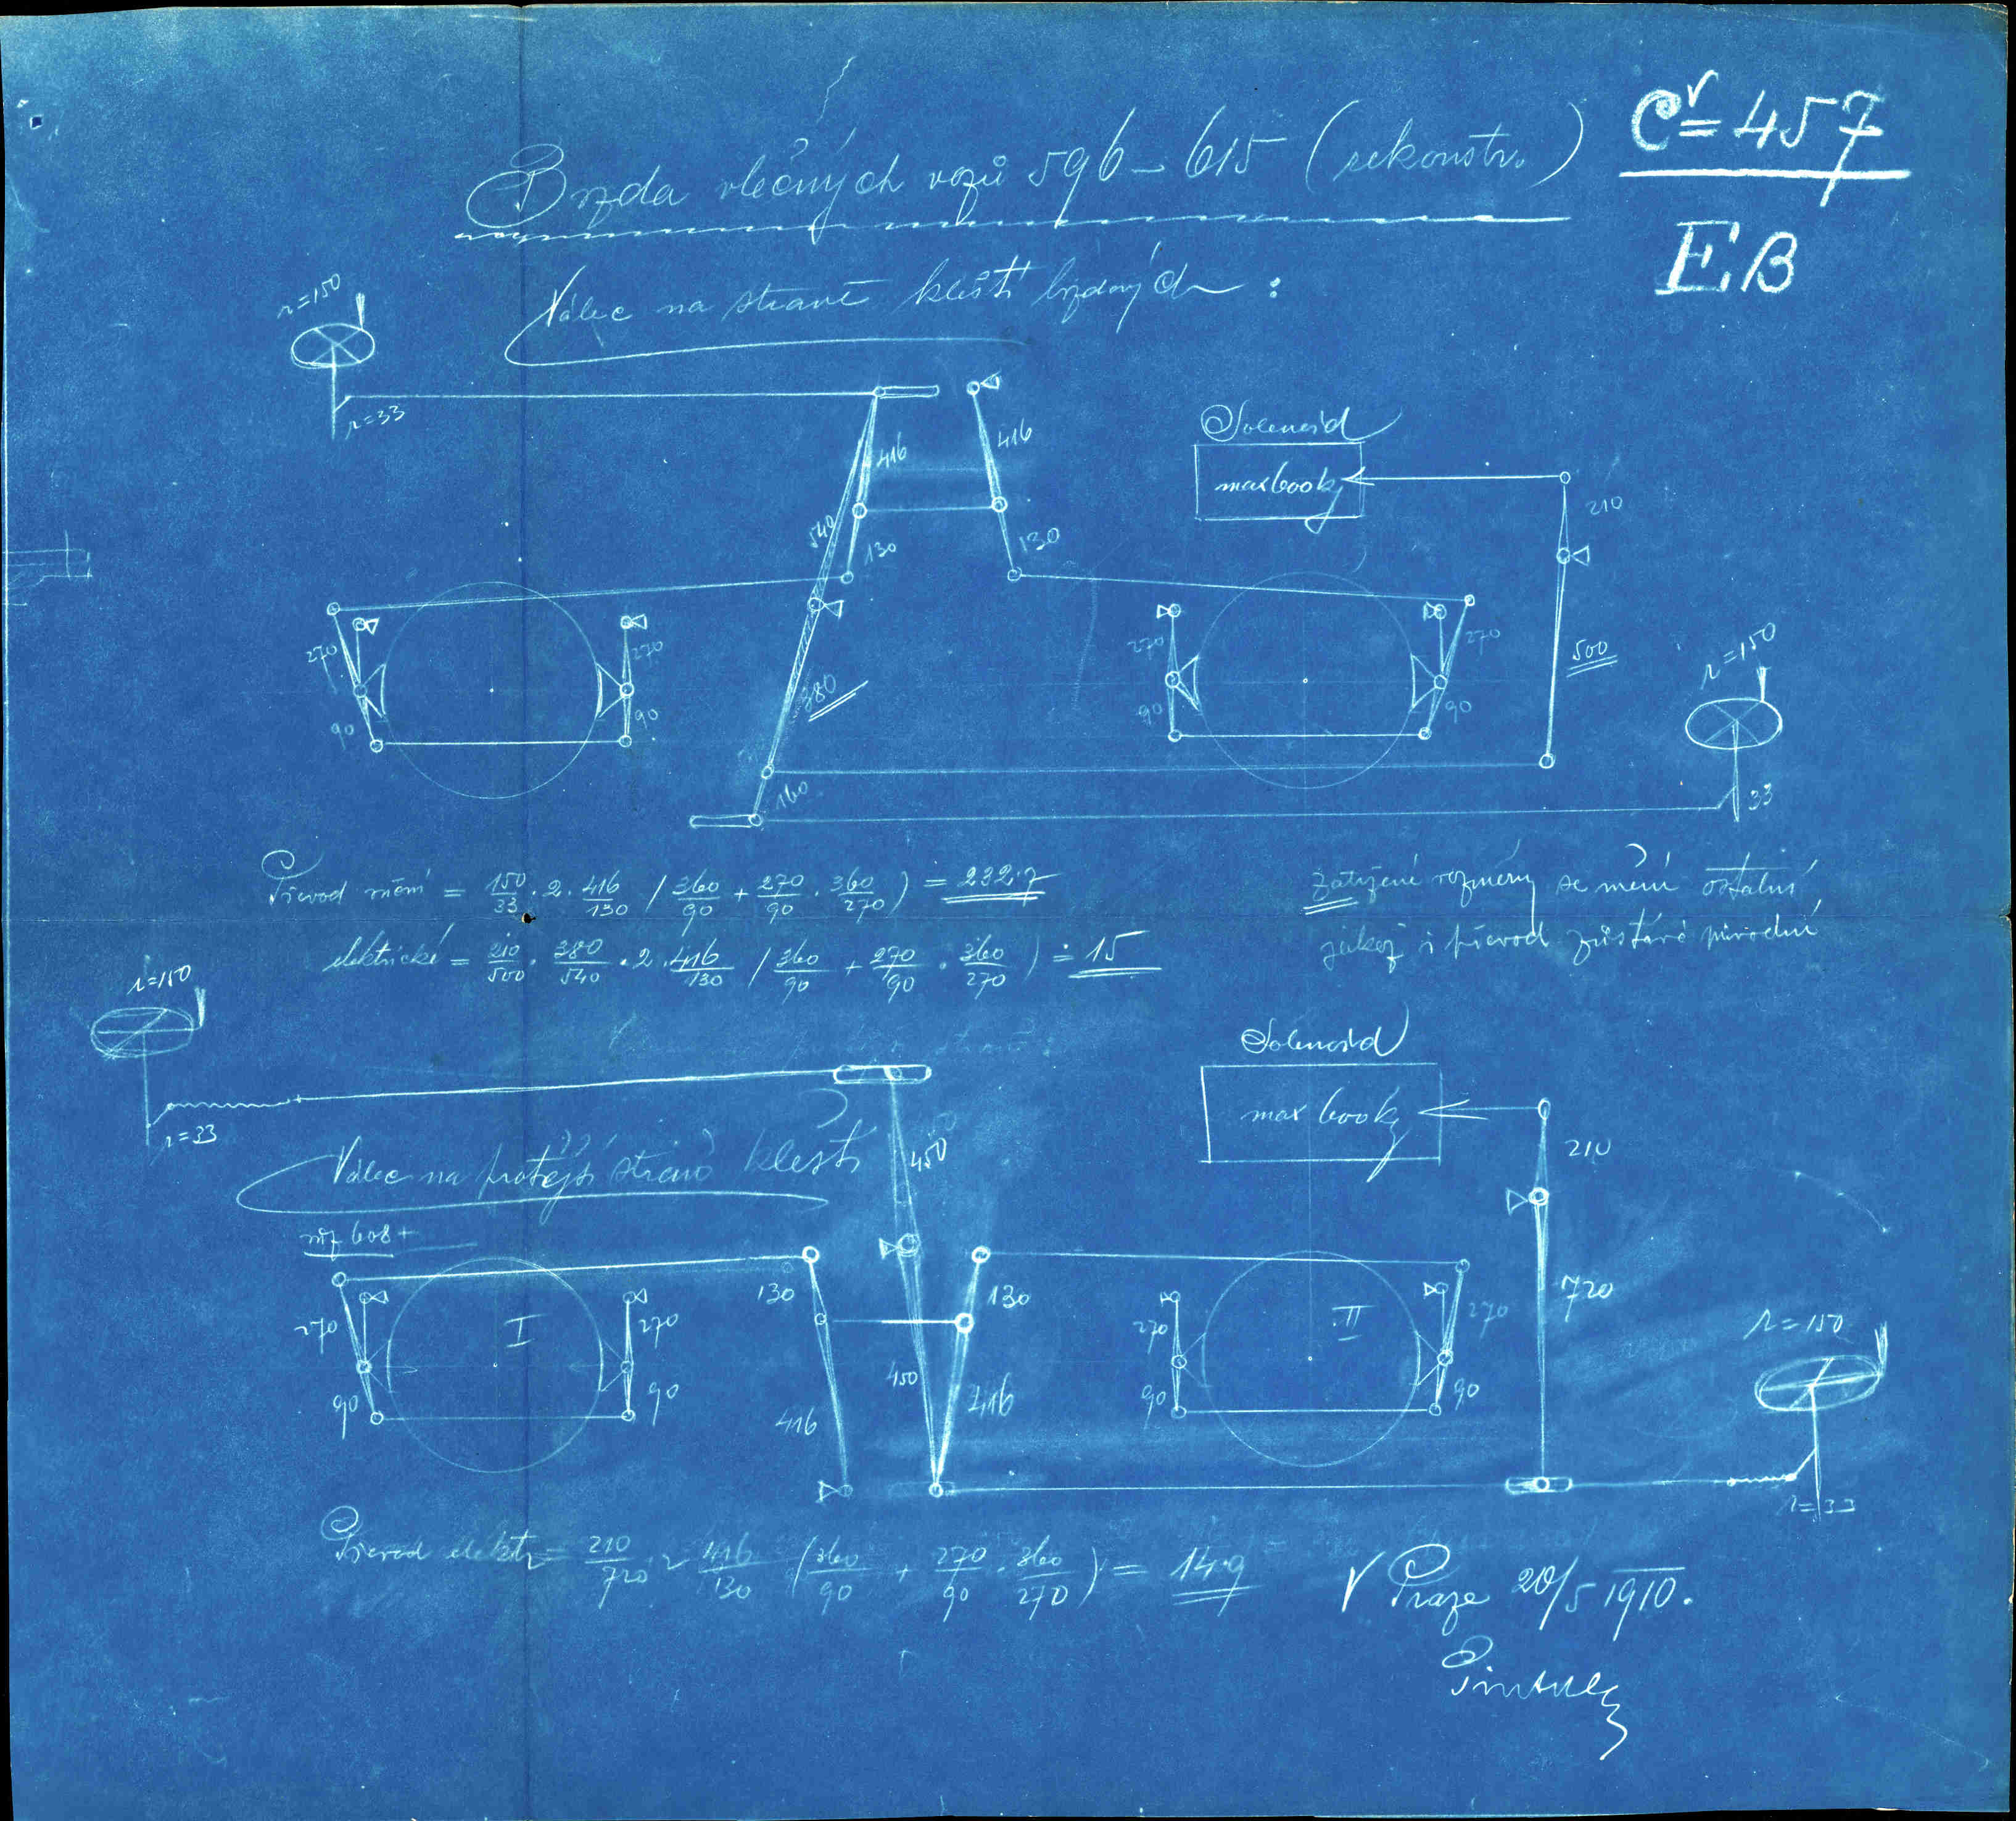 Č=457
EB
Brzda vlečných vozů 596-615 (rekonstr.)
Válec na straně kleští brzdových:
r=150
r=33
416
416
540
130
130
Solenoid
max 600 kg
210
500
270
90
270
90
380
160
270
90
270
90
r=150
33
Převod ruční = 150/33 · 2 · 416/130 (360/90 + 270/90 · 360/270) = 232·7
elektrické = 210/500 · 380/540 · 2 · 416/130 (360/90 + 270/90 · 360/270) = 15
se mění ostatní
jakož i převod zůstává původní
r=150
r=33
Solenoid
max 600 kg
Válec na protější straně kleští
450
210
608+
130
130
720
270
I
270
270
II
270
90
90
416
450
416
90
90
r=150
r=33
Převod elektr = 210/720 · 2 416/130 (360/90 + 270/90 · 360/270) = 14·9
V Praze 20/5 1910.